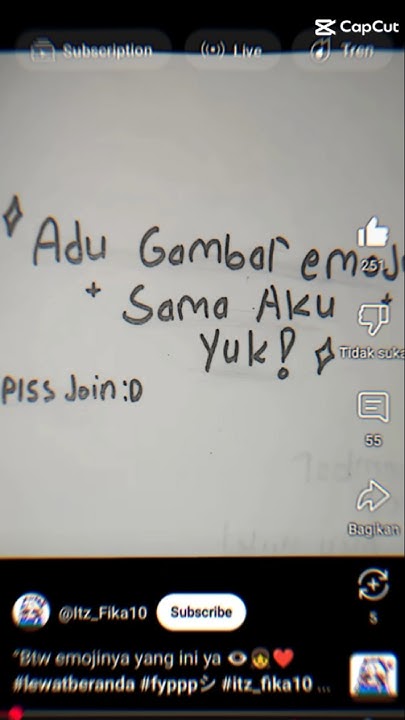 CapCut
Subscription
Live
Tren
Adu Gambar emoj
Sama Aku
Yuk!
Plss Join :D
251
Tidak suka
55
Bagikan
5
@Itz_Fika10
Subscribe
"Btw emojinya yang ini ya 👁️👧❤️
#lewatberanda #fypppシ #itz_fika10 ...